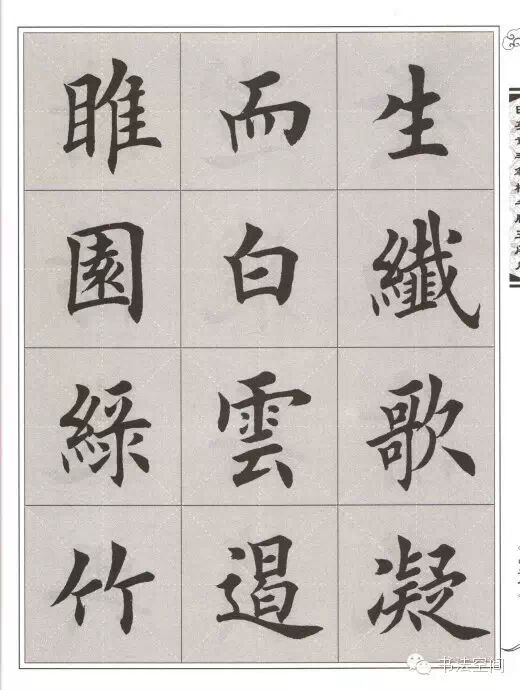 生纖歌凝
而白雲遏
睢園綠竹
书法空间